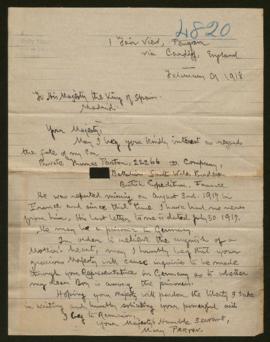 4820
1 Fair View,
via Cardiff, England
February 9, 1918
To His Majesty the King of Spain
Madrid.
Your Majesty
May I beg your kindly interest as regards
the fate of my Son
Private Thomas 22266 D Company,
Battalion South Wales Borderers
British Expedition, France
He was reported missing on August 2nd. 1917 in
France and since that time I have had no news
from him. His last letter to me is dated July 30. 1917.
He may be a prisoner in Germany.
In order to relieve the anguish of a
Mother's heart, may I humbly beg that your
gracious Majesty will cause inquiries to be made
through your Representative in Germany as to whether
my dear Son is among the prisoners.
Hoping your Majesty will pardon the liberty I take
in writing and humbly soliciting your powerful aid
I beg to Remain,
Your Majesty's Humble Servant,
Mary